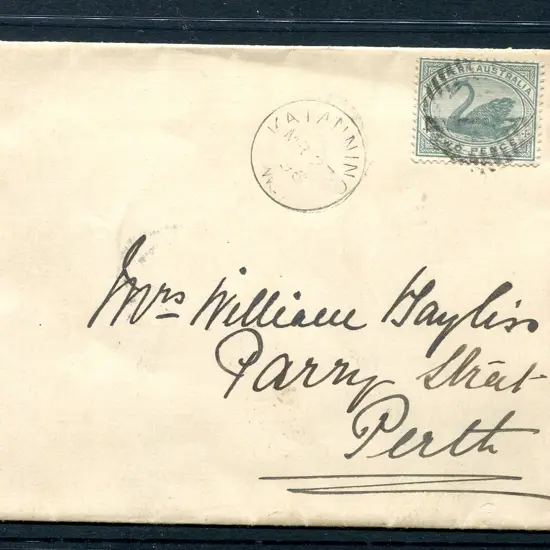 RN AUSTRALIA
TWO PENCE
KATANNING
Mrs William Bayliss
Parry Street
Perth